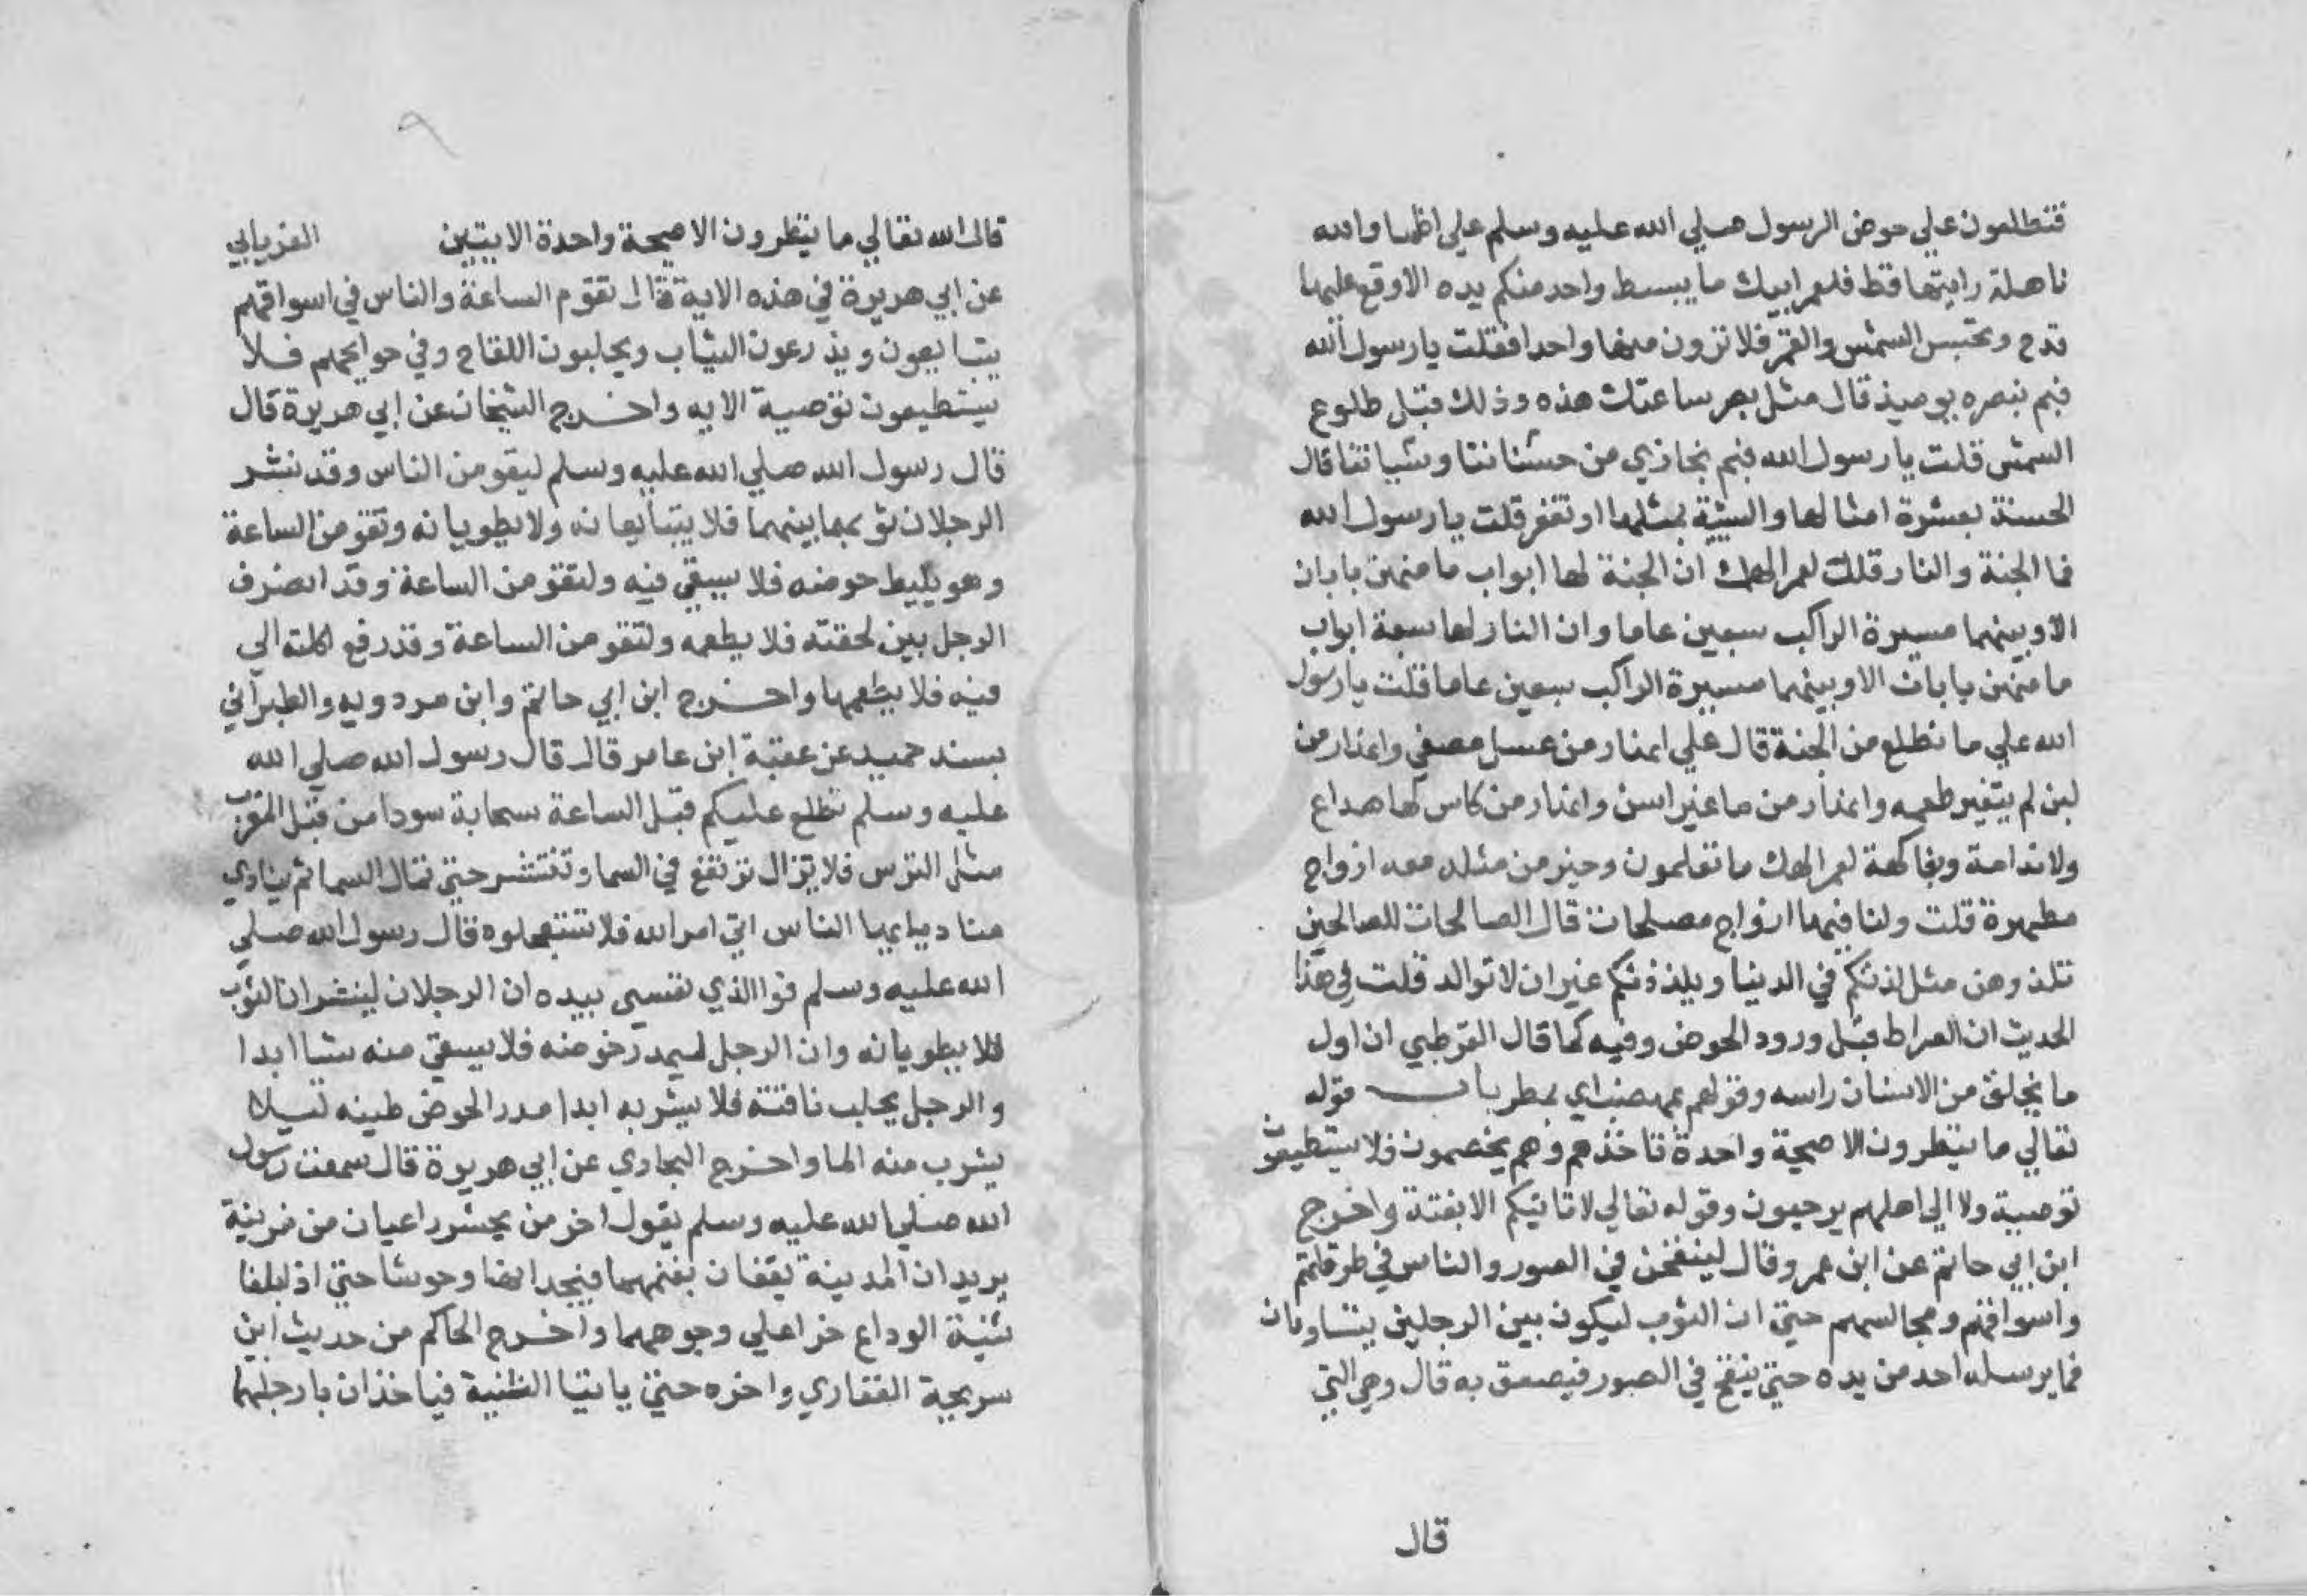 فتطلعون علي حوض الرسول صلي الله عليه وسلم علي اظما والله
ناهلة رايتها قط فلعمر ابيك ما يبسط واحد منكم يده الا وقع عليها
قدح وتحتبس الشمس والقمر فلا ترون منها واحدا فقلت يا رسول الله
فبم نبصره يوميذ قال مثل بصر ساعتك هذه وذلك قبل طلوع
الشمس قلت يا رسول الله فبم نجازي من حسناتنا وسياتنا قال
الحسنة بعشرة امثالها والسيية بمثلها او تغفر قلت يا رسول الله
فما الجنة والنار قلك لعمر الهك ان الجنة لها ابواب ما منهن بابان
الا وبينهما مسيرة الراكب سبعين عاما وان النار لها سبعة ابواب
ما منهن بابان الا وبينهما مسيرة الراكب سبعين عاما قلت يا رسول
الله علي ما نطلع من الجنة قال علي انهار من عسل مصفي وانهار من
لبن لم يتغير طعمه وانهار من ما غير اسن وانهار من كاس لها صداع
ولا ندامة وبفاكهة لعمر الهك ما تعلمون وخير من مثله معه ازواج
مطهرة قلت ولنا فيها ازواج مصلحات قال الصالحات للصالحين
تلذوهن مثل لذتكم في الدنيا ويلذذنكم غير ان لا توالد قلت في هذا
الحديث ان الصراط قبل ورود الحوض وفيه كما قال القرطبي ان اول
ما يخلق من الانسان راسه وقولهم بمهضب اي بمطر باب قوله
تعالي ما ينظرون الا صيحة واحدة تاخذهم وهم يخصمون فلا يستطيعون
توصية ولا الي اهلهم يرجعون وقوله تعالي لا تاتيكم الا بغتة واخرج
ابن ابي حاتم عن ابن عمرو قال لينفخن في الصور والناس في طرقاتهم
واسواقهم ومجالسهم حتي ان الثوب ليكون بين الرجلين يتساومان
فما يرسله احد من يده حتي ينفخ في الصور فيصعق به قال وهي التي
قال
٩
قال الله تعالي ما ينظرون الا صيحة واحدة الايتين الفريابي
عن ابي هريرة في هذه الاية قال تقوم الساعة والناس في اسواقهم
يتبايعون ويذرعون الثياب ويحلبون اللقاح وفي حوايجهم فلا
يستطيعون توصية الايه واخرج الشيخان عن ابي هريرة قال
قال رسول الله صلي الله عليه وسلم ليقومن الناس وقد نشر
الرجلان ثوبهما بينهما فلا يتبايعانه ولا يطويانه وتقومن الساعة
وهو يليط حوضه فلا يسقي فيه ولتقومن الساعة وقد انصرف
الرجل بين لحقته فلا يطعمه ولتقومن الساعة وقد رفع اكلته الي
فيه فلا يطعمها واخرج ابن ابي حاتم وابن مردويه والطبراني
بسند حميد عن عقبة ابن عامر قال قال رسول الله صلي الله
عليه وسلم تطلع عليكم قبل الساعة سحابة سودا من قبل المغرب
مثل الترس فلا يزال ترتفع في السما وتنتشر حتي تملا السما ثم ينادي
مناد يا ايها الناس اتي امر الله فلا تستعجلوه قال رسول الله صلي
الله عليه وسلم فوالذي نفسي بيده ان الرجلان لينشران الثوب
فلا يطويانه وان الرجل ليمدر حوضه فلا يسقي منه شيا ابدا
والرجل يحلب ناقته فلا يشربه ابدا مدر الحوض طينه ليلا
يشرب منه الما واخرج البخاري عن ابي هريرة قال سمعت رسول
الله صلي الله عليه وسلم يقول اخر من يحشر راعيان من مزينة
يريدان المدينة يقفان بغنمهما فيجدانها وحوشا حتي اذ بلغا
ثنية الوداع خرا علي وجوههما واخرج الحاكم من حديث ابن
سريحة الغفاري واخره حتي ياتيا الثنية فياخذان بارجلهما